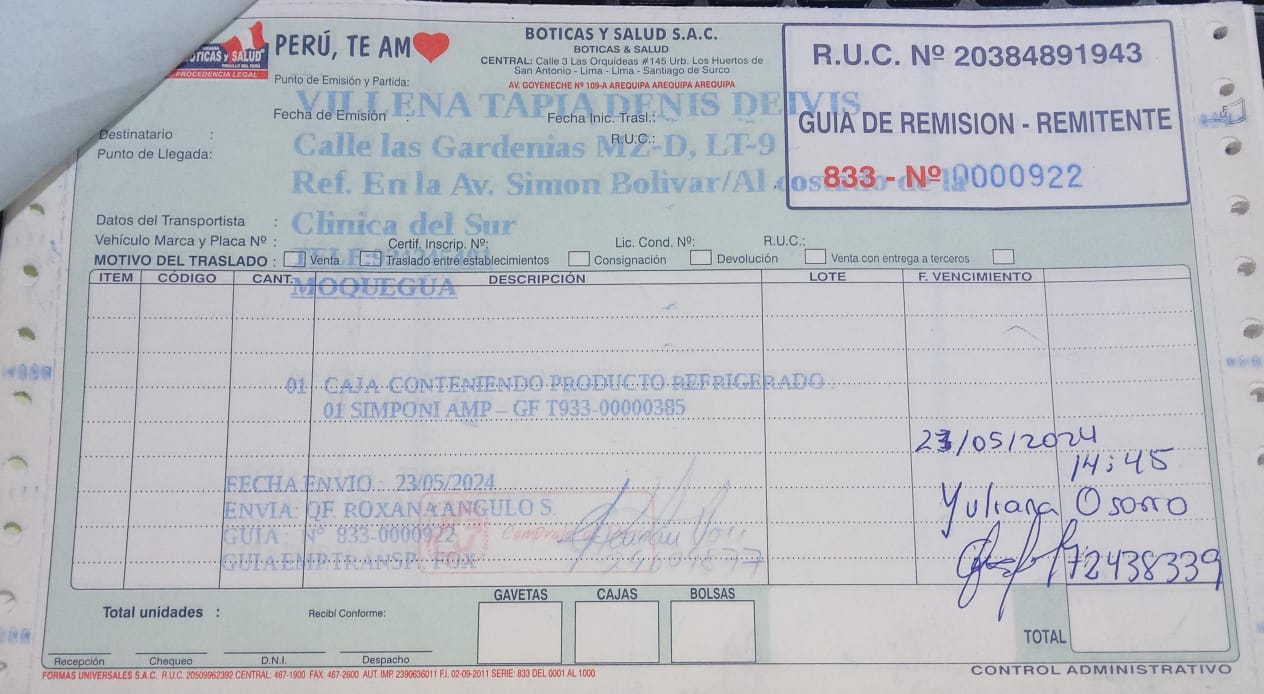 BOTICAS Y SALUD
PROCEDENCIA LEGAL
PERÚ, TE AM
BOTICAS Y SALUD S.A.C.
BOTICAS & SALUD
CENTRAL: Calle 3 Las Orquídeas #145 Urb. Los Huertos de
San Antonio - Lima - Lima - Santiago de Surco
AV. GOYENECHE Nº 109-A AREQUIPA AREQUIPA AREQUIPA
R.U.C. Nº 20384891943
GUIA DE REMISION - REMITENTE
833 - Nº 0000922
Punto de Emisión y Partida:
VILLENA TAPIA DENIS DEIVIS
Fecha de Emisión : Fecha Inic. Trasl.:
Destinatario : R.U.C.:
Punto de Llegada: Calle las Gardenias MZ-D, LT-9
Ref. En la Av. Simon Bolivar/Al costado de la
Datos del Transportista : Clinica del Sur
Vehículo Marca y Placa Nº : Certif. Inscrip. Nº: Lic. Cond. Nº: R.U.C.:
MOTIVO DEL TRASLADO : Venta Traslado entre establecimientos Consignación Devolución Venta con entrega a terceros
ITEM CÓDIGO CANT. DESCRIPCIÓN LOTE F. VENCIMIENTO
MOQUEGUA
01 CAJA CONTENIENDO PRODUCTO REFRIGERADO
01 SIMPONI AMP – GF T933-00000385
23/05/2024
14:45
FECHA ENVIO : 23/05/2024
ENVIA: QF ROXANA ANGULO S.
Yuliana Osorro
GUIA : N° 833-0000922
GUIA EMP TRANSP. FOX
72438339
Total unidades : Recibí Conforme: GAVETAS CAJAS BOLSAS
TOTAL
Recepción Chequeo D.N.I. Despacho
CONTROL ADMINISTRATIVO
FORMAS UNIVERSALES S.A.C. R.U.C. 20509962392 CENTRAL: 467-1900 FAX: 467-2600 AUT. IMP. 2390636011 F.I. 02-09-2011 SERIE: 833 DEL 0001 AL 1000